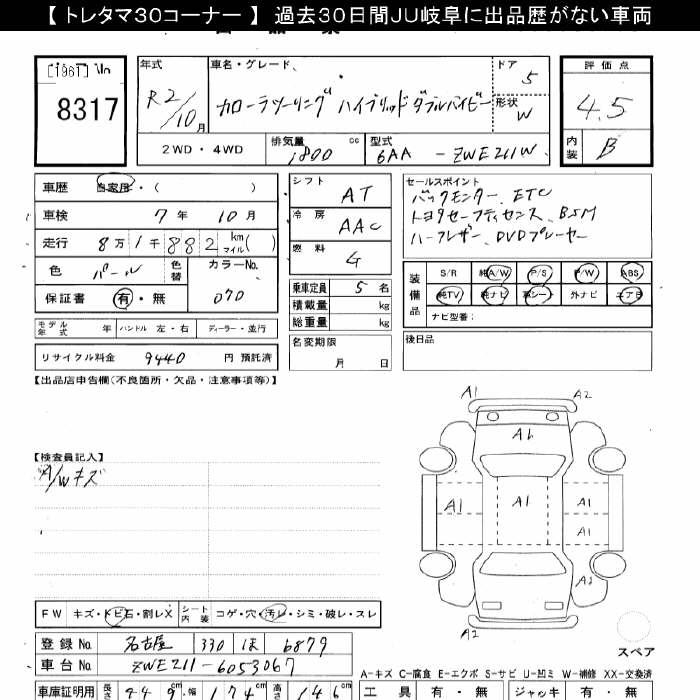 【トレタマ30コーナー】 過去30日間JU岐阜に出品歴がない車両
8317
年式
R2/10月
車名・グレード、
カローラツーリング ハイブリッドダブルバイビー
ドア 5
形状 W
評価点
4.5
内装 B
2WD・4WD
排気量 1800 cc
型式 6AA - ZWE211W
車歴 自家用・( )
車検 7年 10月
走行 8万1千882 km マイル( )
色 パール 色替 カラーNo. 070
保証書 有・無
シフト AT
冷房 AAC
燃料 G
乗車定員 5名
積載量 kg
総重量 kg
セールスポイント
バックモニター、ETC
トヨタセーフティセンス、BSM
ハーフレザー、DVDプレーヤー
装備品
S/R 純A/W P/S P/W ABS
純TV 純ナビ 革シート 外ナビ エアB
ナビ型番:
モデル年式 年 ハンドル 左・右 ディーラー・並行
リサイクル料金 9440 円 預託済
名変期限
月 日
後日品
【出品店申告欄(不良箇所・欠品・注意事項等)】
【検査員記入】
A/Wキズ
A1 A2
A1
A1 A1 A1
A1
A2
A2
スペア
FW キズ・トビ石・割レX
シート内装 コゲ・穴・汚レ・シミ・破レ・スレ
登録No. 名古屋 330 ほ 6879
車台No. ZWE211-6053067
A-キズ C-腐食 E-エクボ S-サビ U-凹ミ W-補修 XX-交換済
車庫証明用 長さ cm 幅 174 cm 高さ 146 cm
工具 有・無 ジャッキ 有・無